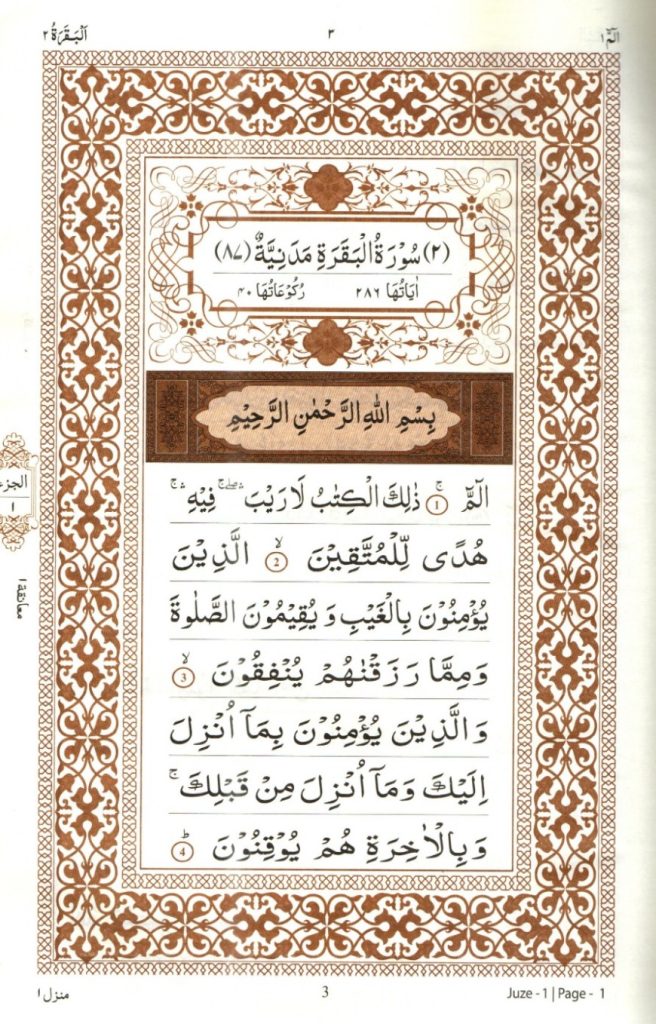 الٓمّٓ ۱
۳
اَلْبَقَرَةُ ۲
(۲) سُوْرَةُ الْبَقَرَةِ مَدَنِيَّةٌ (۸۷)
اٰيَاتُهَا ۲۸۶ رُكُوْعَاتُهَا ۴۰
بِسْمِ اللّٰهِ الرَّحْمٰنِ الرَّحِيْمِ
الٓمّٓ ۚ 1 ذٰلِكَ الْكِتٰبُ لَا رَيْبَ ۛۖۚ فِيْهِ ۛۚ
هُدًى لِّلْمُتَّقِيْنَ ۙ 2 الَّذِيْنَ
يُؤْمِنُوْنَ بِالْغَيْبِ وَ يُقِيْمُوْنَ الصَّلٰوةَ
وَمِمَّا رَزَقْنٰهُمْ يُنْفِقُوْنَ ۙ 3
وَالَّذِيْنَ يُؤْمِنُوْنَ بِمَآ اُنْزِلَ
اِلَيْكَ وَمَآ اُنْزِلَ مِنْ قَبْلِكَ ۚ
وَبِالْاٰخِرَةِ هُمْ يُوْقِنُوْنَ ؕ 4
الجزء
۱
معانقة ۱
منزل ۱
3
Juze -1 | Page - 1